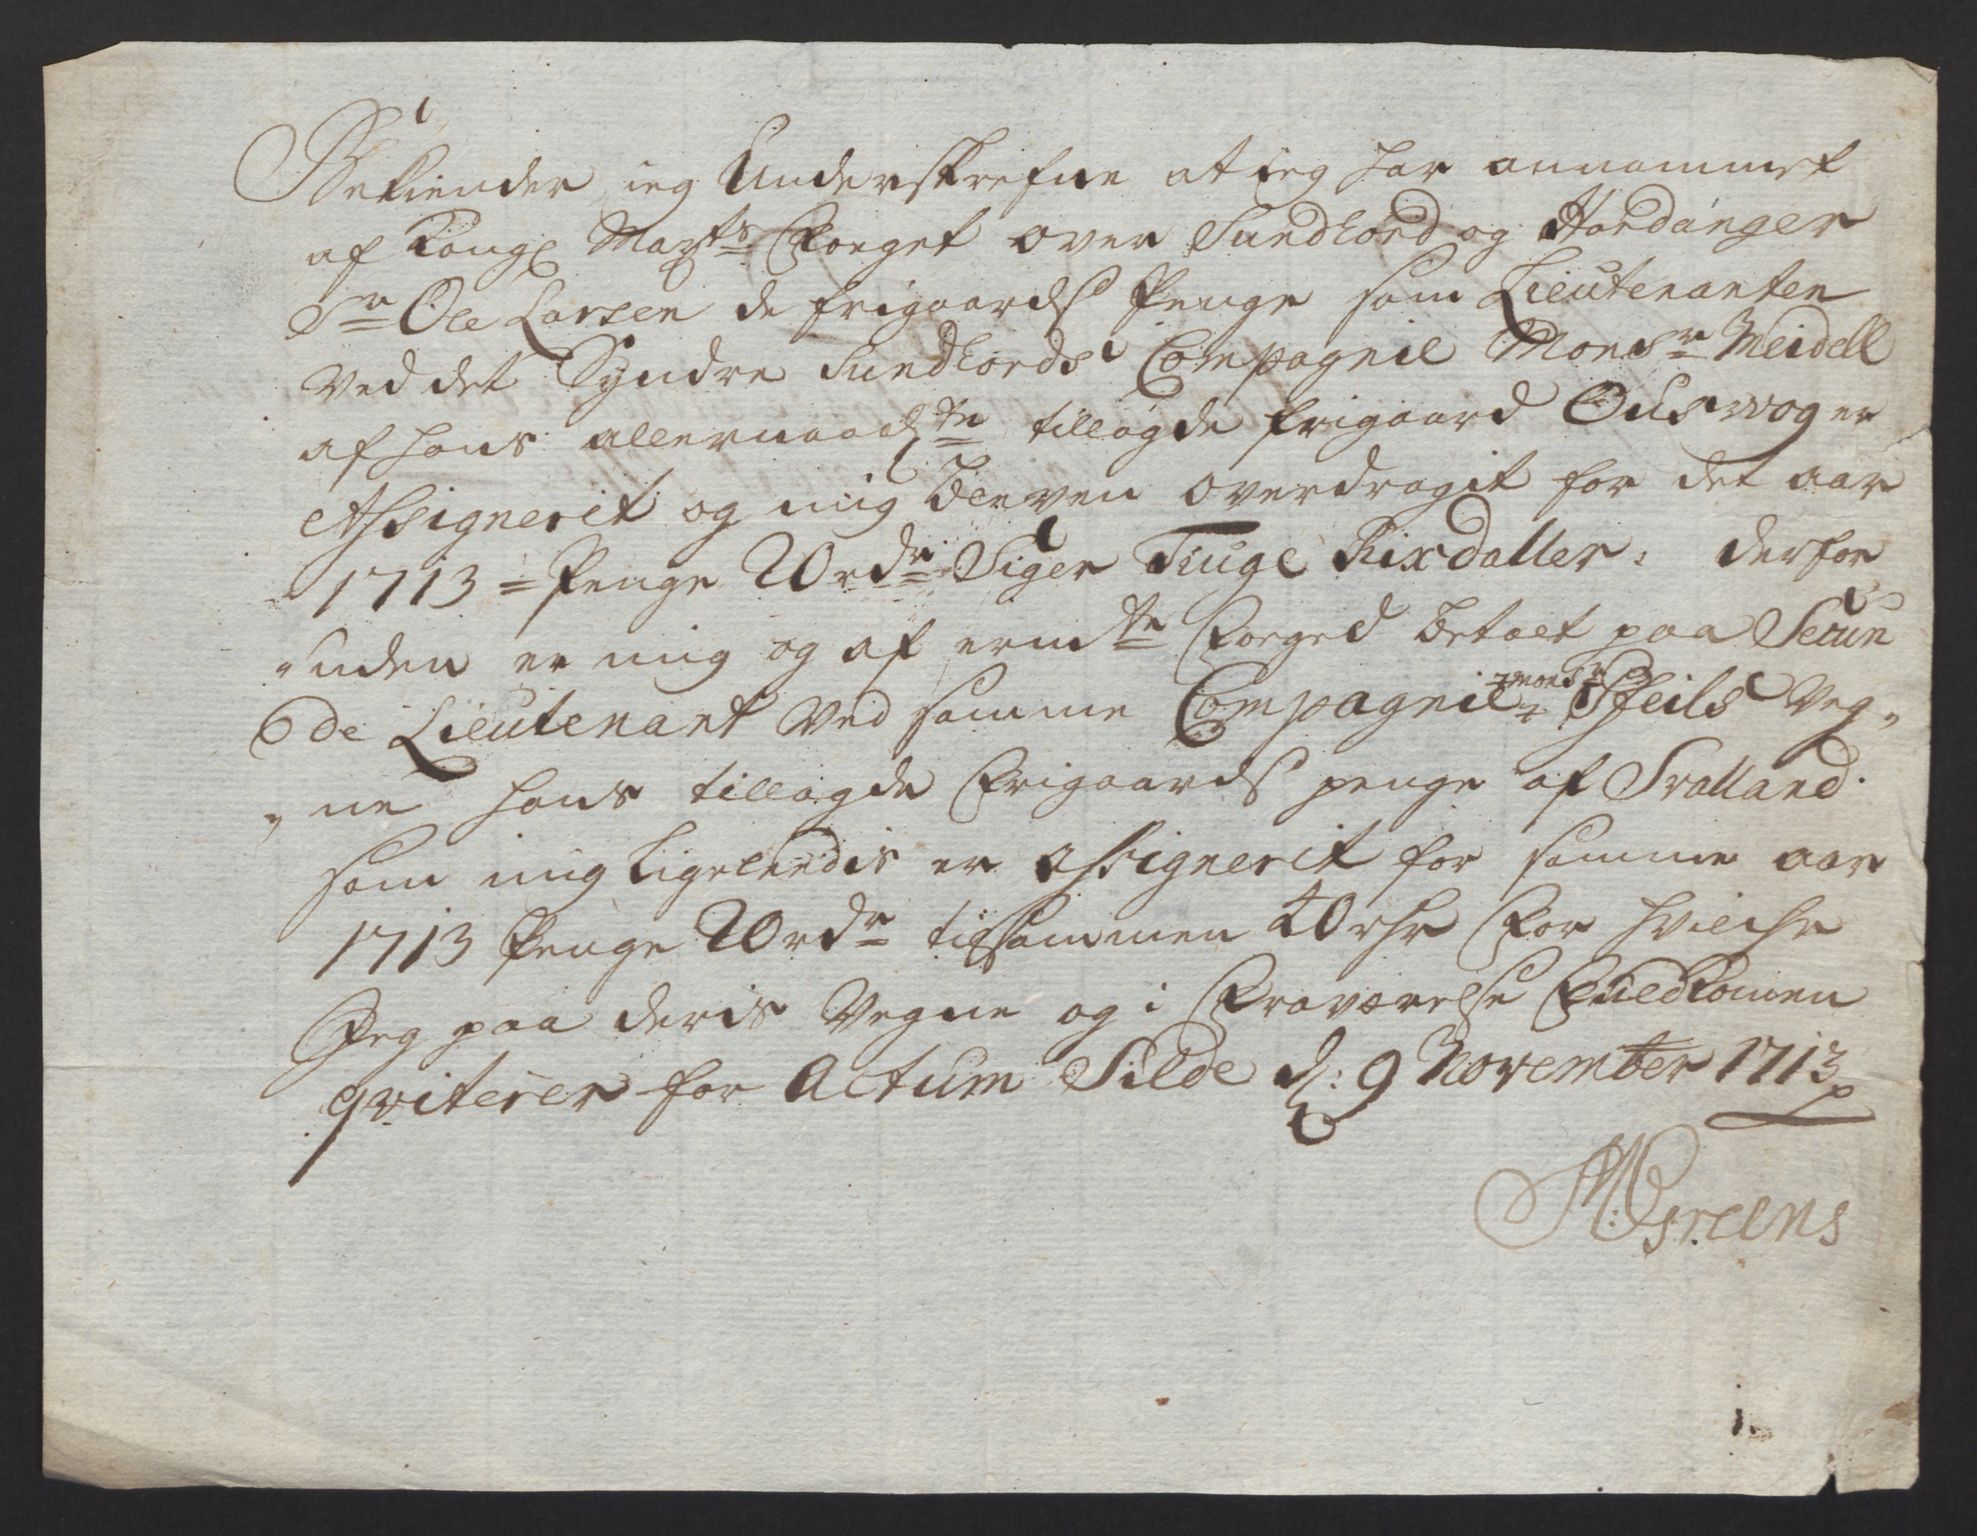 Bekiender ieg Underskrefne at ieg har annammet
af Kongl Mayts Foeget over Sundhord og Hardanger
Sr Ole Larsen de frigaards Penge som Lieutenanten
Ved det Syndre Sundhords Compagnie Monsr Meidell
af hans allernaadste tillagde frigaard Ouswog er
Assignerit og mig bleven overdragit for det aar
1713 = Penge 20 rdr Siger Tiuge Rixdaller: derfor
uden er mig og af ermte Foeged betalt paa Secun
de Lieutenant Ved samme Compagnie Monsr Pfeils Veg,,
,,ne hans tillagde Frigaards penge af Sralland
som mig ligeleedis er Assignerit for samme aar
1713 Penge 20 rdr tilsammen 40 rdr For hvilche
Jeg paa deris Vegne og i Fraværelse Fuldkomen
qviterer for Actum Silde d: 9 November 1713